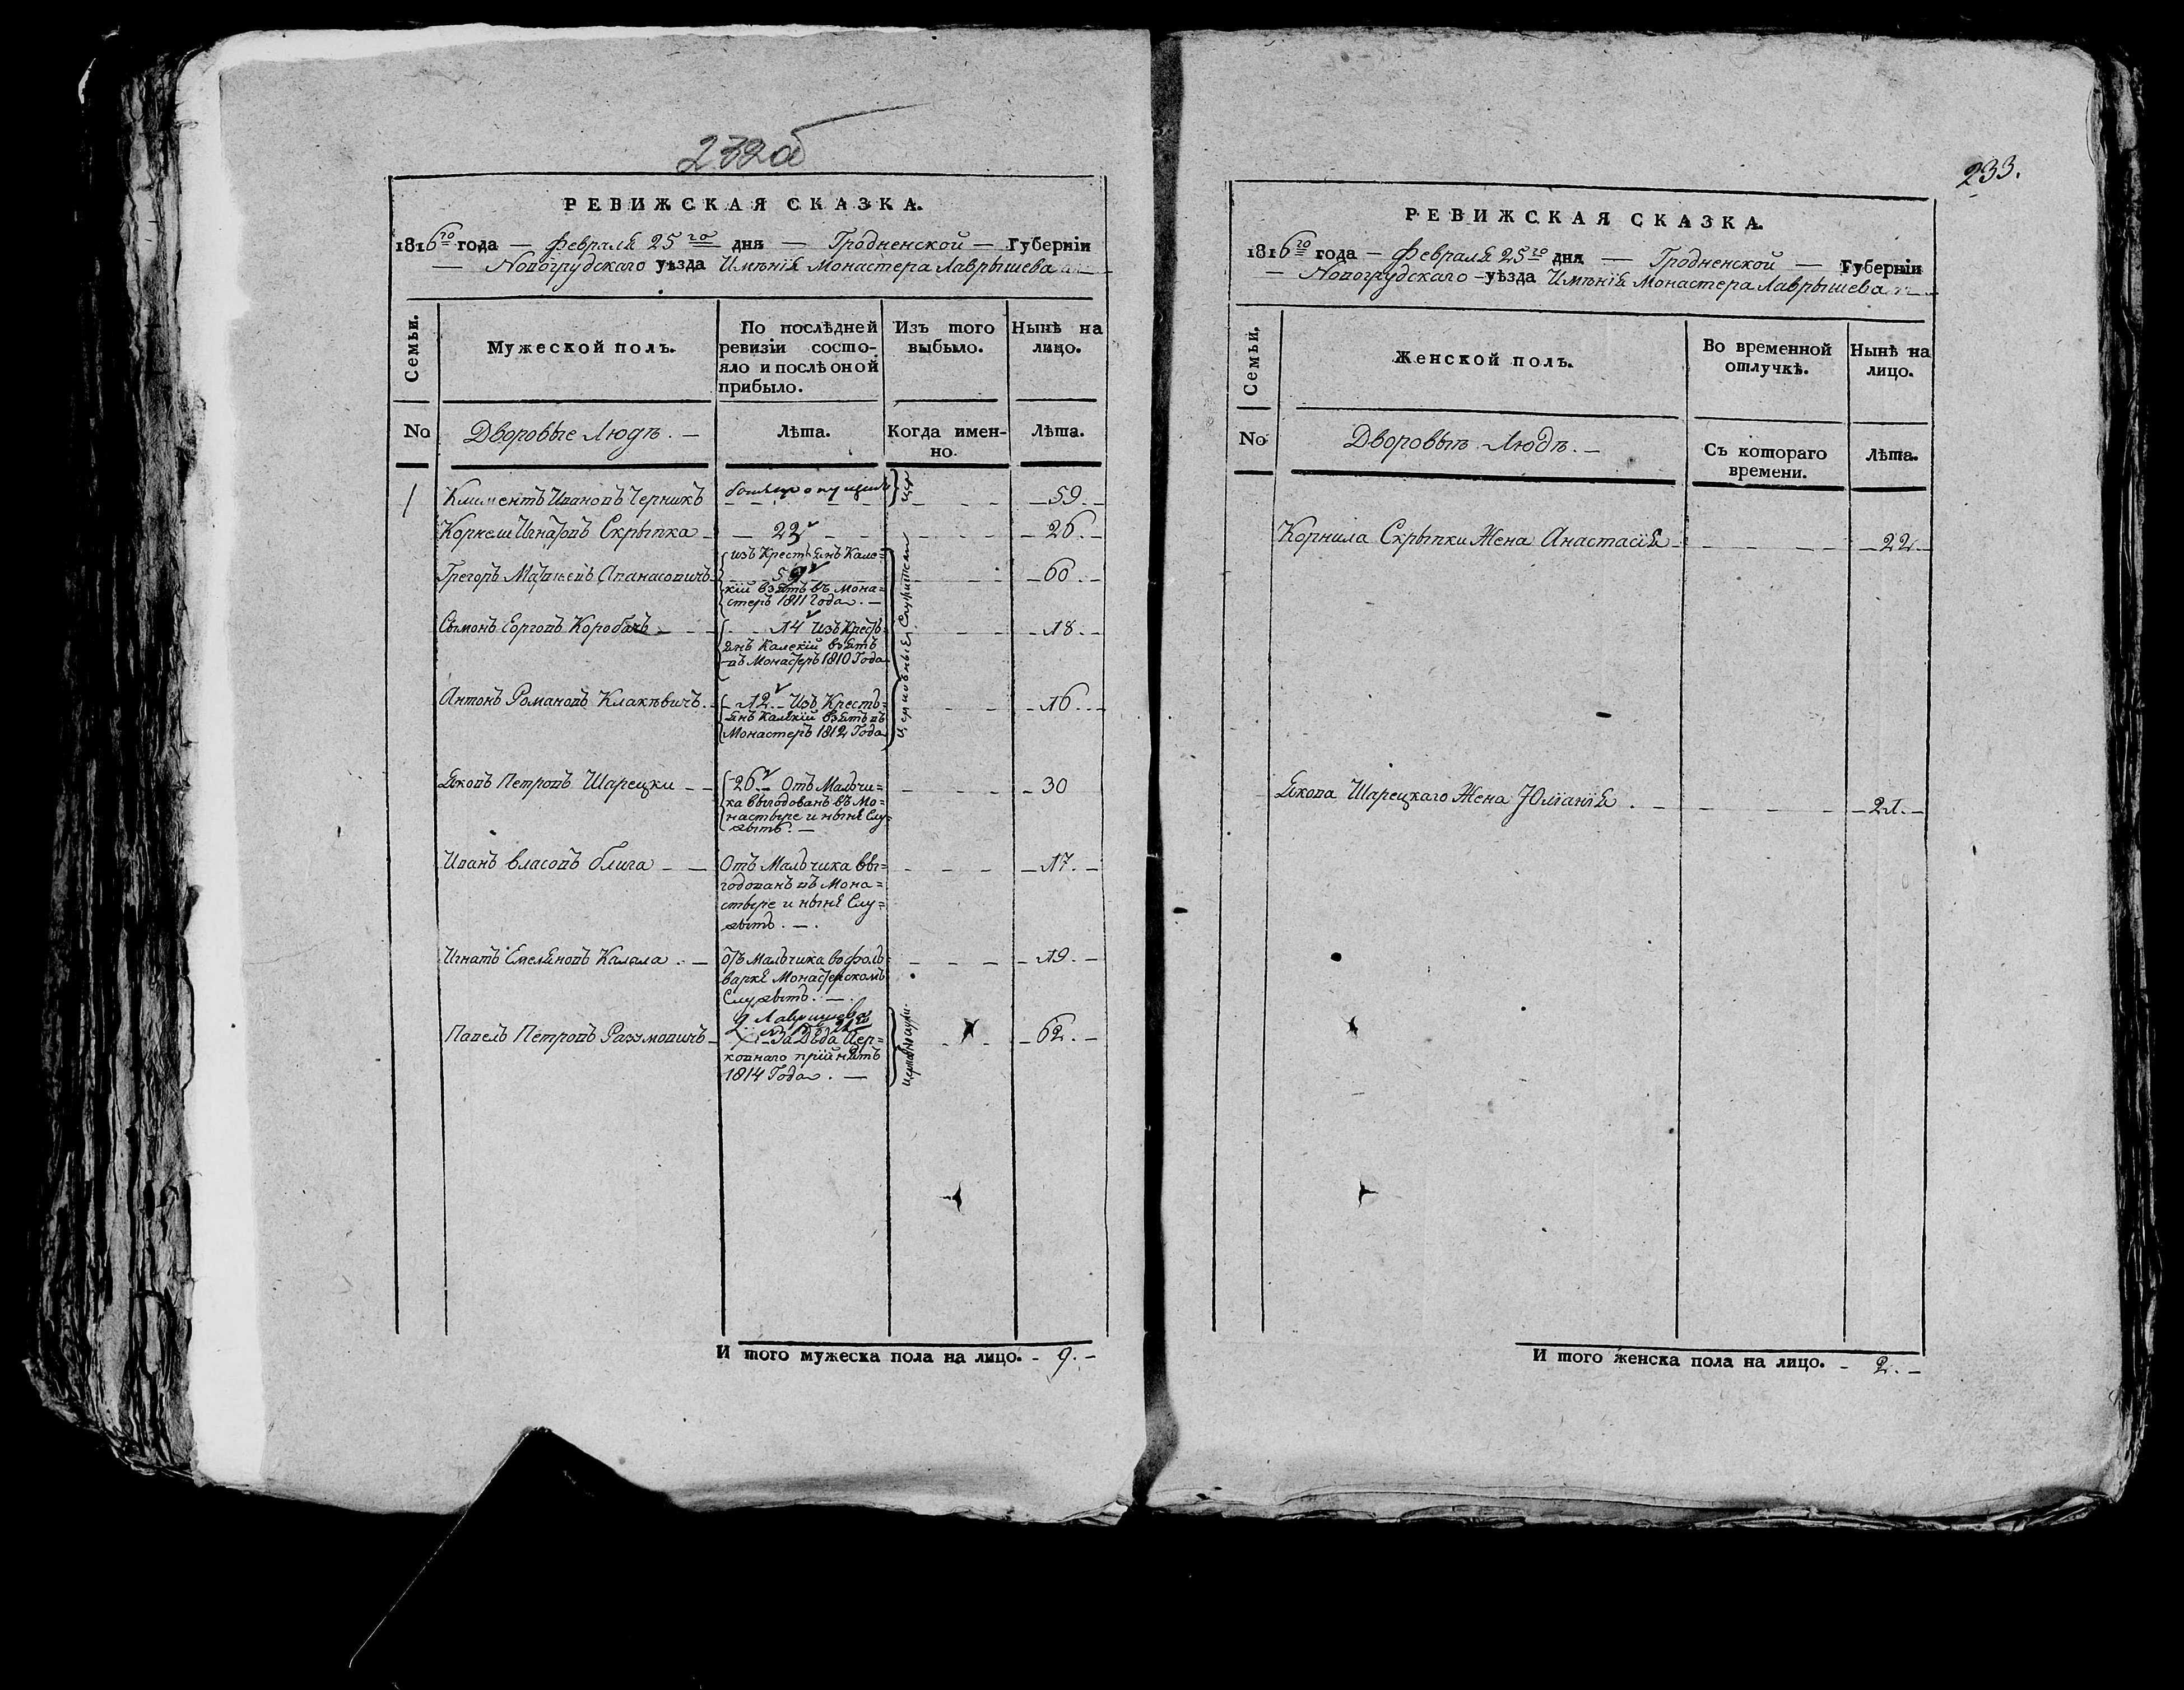 232об
РЕВИЖСКАЯ СКАЗКА.
1816го года — Февраля 25го дня — Гродненской — Губерніи
— Новогрудскаго уѣзда Имѣнія Монастера Лаврышева
Семьи.
Мужеской полъ.
По послѣдней ревизіи состо-
яло и послѣ оной
прибыло.
Изъ того
выбыло.
Нынѣ на
лицо.
No
Дворовые Людѣ. —
Лѣта.
Когда имен-
но.
Лѣта.
1
Климентъ Ивановъ Черникъ
былъ пропущенъ
59
Корнели Игнатовъ Скрыпка
23
26
Грегоръ Матвеевъ Апанасовичъ
изъ Крестьянъ Кале=
59
кій взятъ въ Мона=
стеръ 1811 Года. —
60
Церковныея Служители
Сымонъ Еорговъ Коробачъ
14 Изъ Кресть=
янъ Калекій взятъ
въ Монастеръ 1810 Года
18
Антонъ Романовъ Клакевичъ
12 — Изъ Кресть=
янъ Калекій взятъ въ
Монастеръ 1812 Года
16
Яковъ Петровъ Шарецки
26 — Отъ Мальчи=
ка выгодованъ въ Мо=
настыре и ныня Слу=
жытъ. —
30
Иванъ Власовъ Блига
Отъ Мальчика вы=
годованъ въ Мона=
стыре и ныня Слу=
жытъ. —
17
Игнатъ Емеляновъ Калыла
Отъ Мальчика в фоль=
варкя Монастерскомъ
Служытъ. —
19
Павелъ Петровъ Разумовичъ
Лавришева
За Дѣда Цер=
ковнаго пріинятъ
1814 Года. —
62
И того мужеска пола на лицо. - 9. -
233.
РЕВИЖСКАЯ СКАЗКА.
1816го года — Февраля 25го дня — Гродненской — Губерніи
— Новогрудскаго — уѣзда Имѣнія Монастера Лаврышева
Семьи.
Женской полъ.
Во временной
отлучкѣ.
Нынѣ на
лицо.
No
Дворовыѣ Людѣ. —
Съ котораго
времени.
Лѣта.
Корнила Скрыпки Жена Анастасія
22
Якова Шарецкаго Жена Юліанія
21.
И того женска пола на лицо. - 2. -